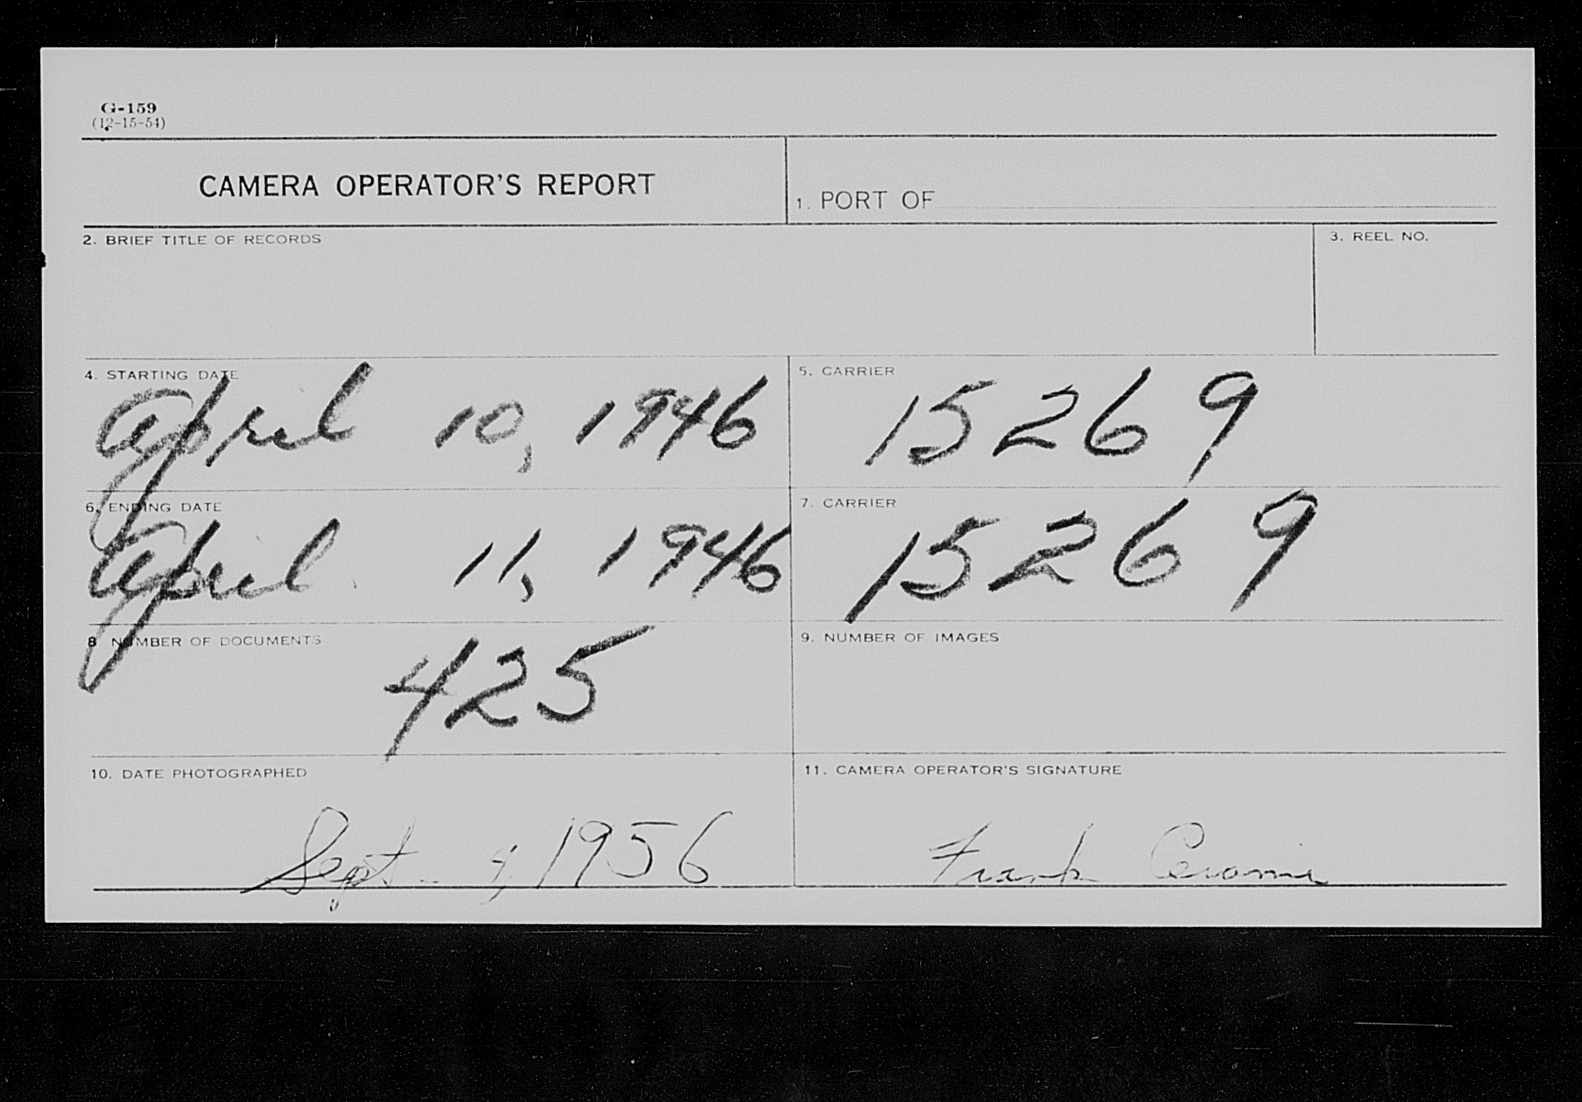 G-159
(12-15-54)
CAMERA OPERATOR'S REPORT
1. PORT OF
2. BRIEF TITLE OF RECORDS
3. REEL NO.
4. STARTING DATE
April 10, 1946
5. CARRIER
15269
6. ENDING DATE
April 11, 1946
7. CARRIER
15269
8 NUMBER OF DOCUMENTS
425
9. NUMBER OF IMAGES
10. DATE PHOTOGRAPHED
Sept. 4, 1956
11. CAMERA OPERATOR'S SIGNATURE
Frank